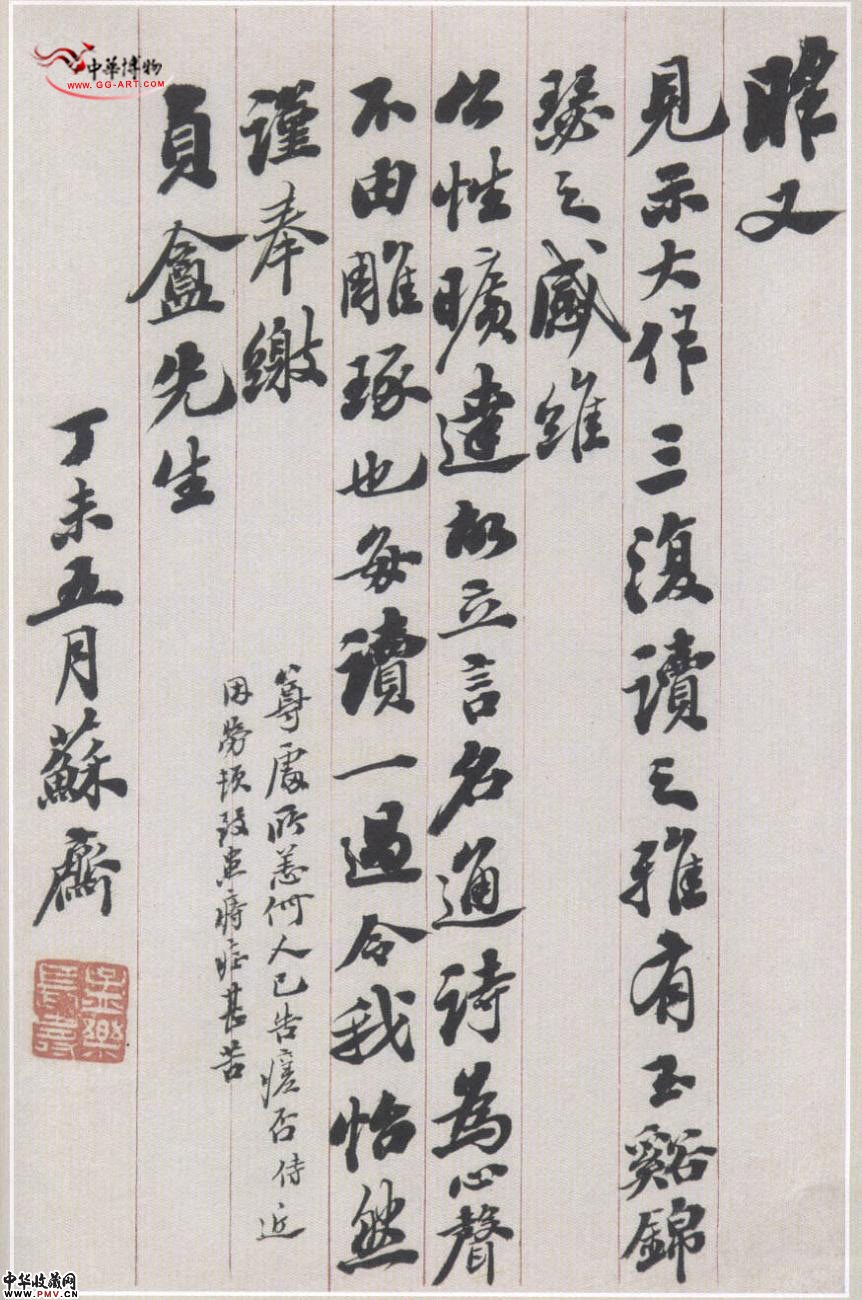 中華博物
www.GG-ART.COM
昨又
見示大作三復讀之雅有玉谿錦
瑟之感維
公性曠達故立言名通詩為心聲
不由雕琢也每讀一過令我怡然
謹奉繳
貞盦先生
尊處所恙何人已告痊否侍近
因勞頓致患痔症甚苦
丁未五月蘇齋
中华收藏网
www.PMV.CN